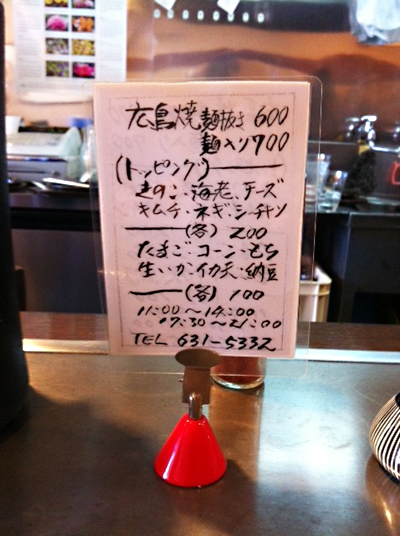 広島焼 麺抜き 600
麺入り 700
(トッピング)
きのこ・海老、チーズ
キムチ・ネギ・シーチキン
(各) 200
たまご・コーン・もち
生いか・イカ天・納豆
(各) 100
11:00〜14:00
17:30〜21:00
TEL 631-5332